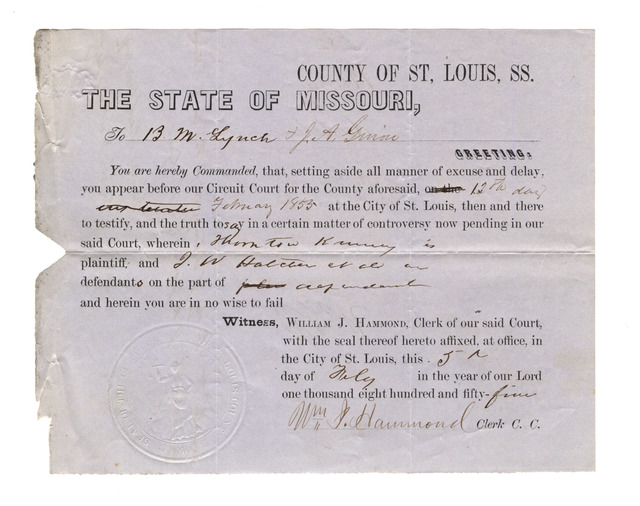 COUNTY OF ST. LOUIS, SS.
THE STATE OF MISSOURI,
To B M. Lynch & J. A. Guion
GREETING:
You are hereby Commanded, that, setting aside all manner of excuse and delay,
you appear before our Circuit Court for the County aforesaid, on the 12th day
February 1855 at the City of St. Louis, then and there
to testify, and the truth to say in a certain matter of controversy now pending in our
said Court, wherein Thornton Kinney is
plaintiff, and J. W Hatcher et al are
defendants on the part of defendant
and herein you are in no wise to fail
Witness, WILLIAM J. HAMMOND, Clerk of our said Court,
with the seal thereof hereto affixed, at office, in
the City of St. Louis, this 5th
day of Feby in the year of our Lord
one thousand eight hundred and fifty-five
Wm J. Hammond Clerk C. C.